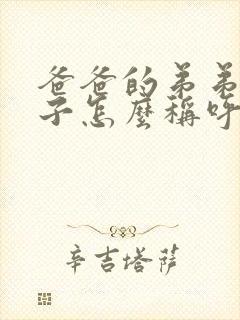 爸爸的弟弟
子怎麼稱呼
辛吉塔萨